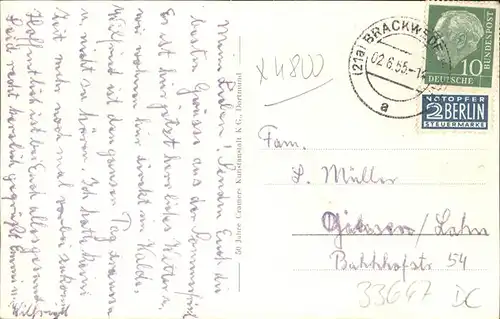 Meine Lieben! Senden Euch die
besten Grüsse aus der Sommerfrische
Es ist hier jetzt herrliches Wetter u.
wir wohnen hier direkt im Walde.
Wild ist den ganzen Tag draussen
u. nicht zu hören. Ich hatte keine
Zeit mehr noch mal vorbei zukommen
Hoffentlich ist bei Euch alles gesund
Seid recht herzlich gegrüßt
50 Jahre Cramers Kunstanstalt K-G., Dortmund
x 4800
(21a) BRACKWEDE
02.6.55.-1
a
10
DEUTSCHE
BUNDESPOST
NOTOPFER
2 BERLIN
STEUERMARKE
Fam.
L. Müller
/Lahn
Bahnhofstr 54
33647 DC